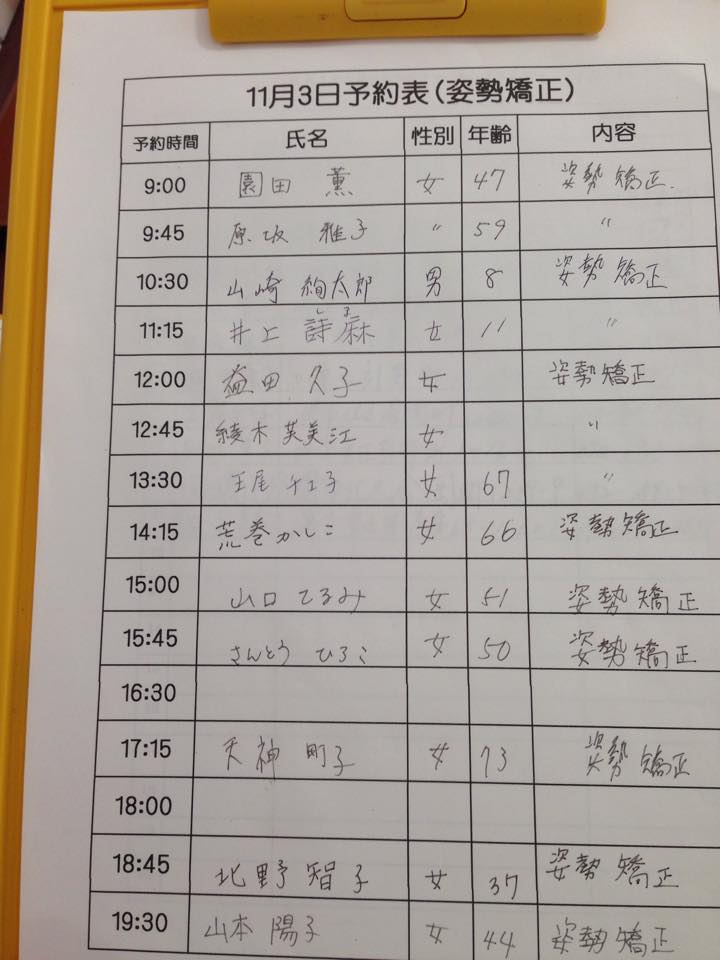 11月3日予約表(姿勢矯正)
予約時間 氏名 性別 年齢 内容
9:00 園田 薫 女 47 姿勢矯正.
9:45 原坂 雅子 〃 59 〃
10:30 山崎 絢太郎 男 8 姿勢矯正
11:15 井上 詩麻 女 11 〃
12:00 益田 久子 女 姿勢矯正
12:45 綾木 芙美江 女 〃
13:30 玉尾 千江子 女 67 〃
14:15 荒巻かしこ 女 66 姿勢矯正
15:00 山口 てるみ 女 51 姿勢矯正
15:45 さんとう ひろこ 女 50 姿勢矯正
16:30
17:15 天神 町子 女 73 姿勢矯正
18:00
18:45 北野智子 女 37 姿勢矯正
19:30 山本 陽子 女 44 姿勢矯正